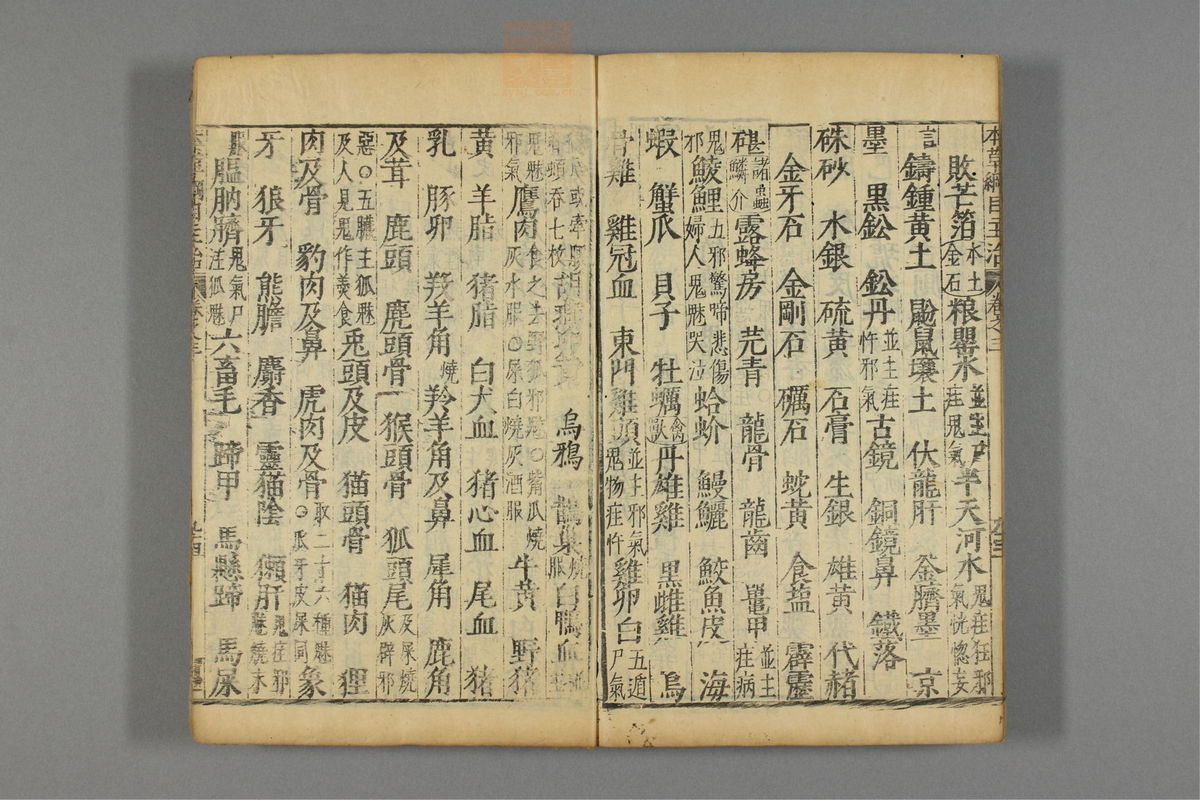 本草綱目主治 卷之三
敗芒箔 本土金石 粮罌水 並主尸疰鬼氣 半天河水 鬼疰狂邪氣恍惚妄
言 鑄鍾黃土 鼢鼠壤土 伏龍肝 釜臍墨 京
墨 黑鈆 鈆丹 並主疰忤邪氣 古鏡 銅鏡鼻 鐵落
硃砂 水銀 硫黃 石膏 生銀 雄黃 代赭
金牙石 金剛石 礪石 蛇黃 食藍 霹靂
碪 諸蟲鱗介 露蜂房 芫青 龍骨 龍齒 鼉甲 並主疰病
鬼邪 鯪鯉 五邪驚啼悲傷婦人鬼魅哭泣 蛤蚧 鰻鱺 鮫魚皮 海
蝦 蟹爪 貝子 牡蠣 禽獸 丹雄雞 黑雌雞 烏
骨雞 雞冠血 東門雞頭 並主邪氣鬼物疰忤 雞卵白 五遁尸氣
吞七枚 胡燕卵黃 烏鴉 鵲巢 白鴨血
鬼魅邪氣 鷹肉 食之主邪狐邪魅○嘴爪燒灰水服○屎白燒灰酒服 牛黃 野猪
黃 羊脂 猪脂 白犬血 猪心血 尾血 猪
乳 豚卵 羖羊角 燒 羚羊角及鼻 犀角 鹿角
及茸 鹿頭 麂頭骨 猴頭骨 狐頭尾 及屎燒灰辟邪
惡○五臟主狐魅及人見鬼作羹食 兎頭及皮 猫頭骨 猫肉 狸
肉及骨 豹肉及鼻 虎肉及骨 取二十六種魅○爪牙皮屎同 象
牙 狼牙 熊膽 麝香 靈猫陰 獺肝 鬼疰邪魅燒末
服 膃肭臍 鬼氣尸疰狐魅 六畜毛 蹄甲 馬懸蹄 馬屎